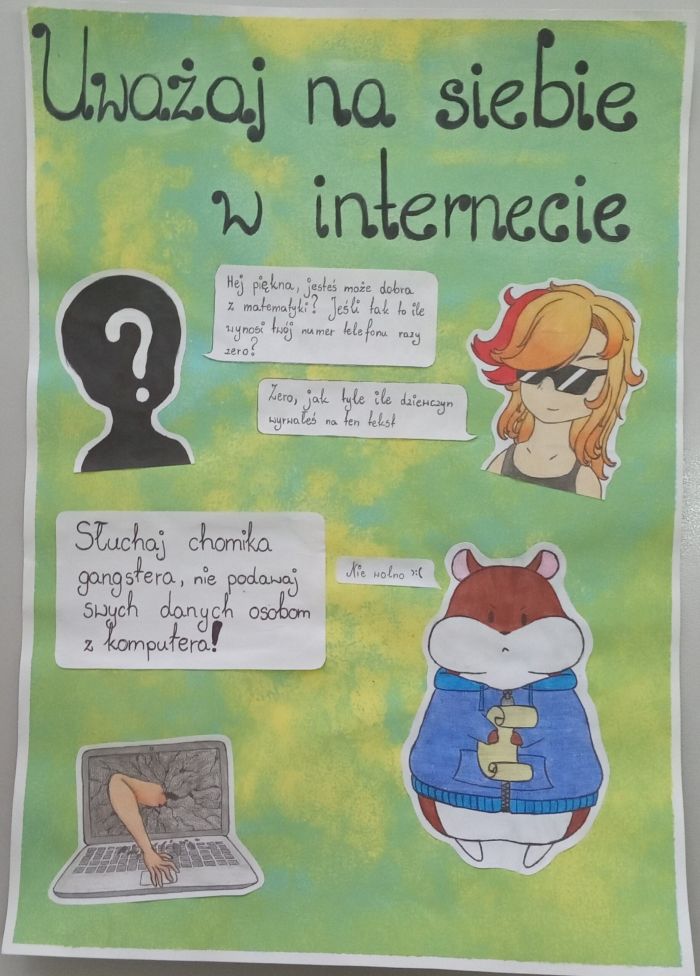 Uważaj na siebie
w internecie
Hej piękna, jesteś może dobra
z matematyki? Jeśli tak to ile
wynosi twój numer telefonu razy
zero?
Zero, jak tyle ile dziewczyn
wyrwałeś na ten tekst
Słuchaj chomika
gangstera, nie podawaj
swych danych osobom
z komputera!
Nie wolno >:(
?